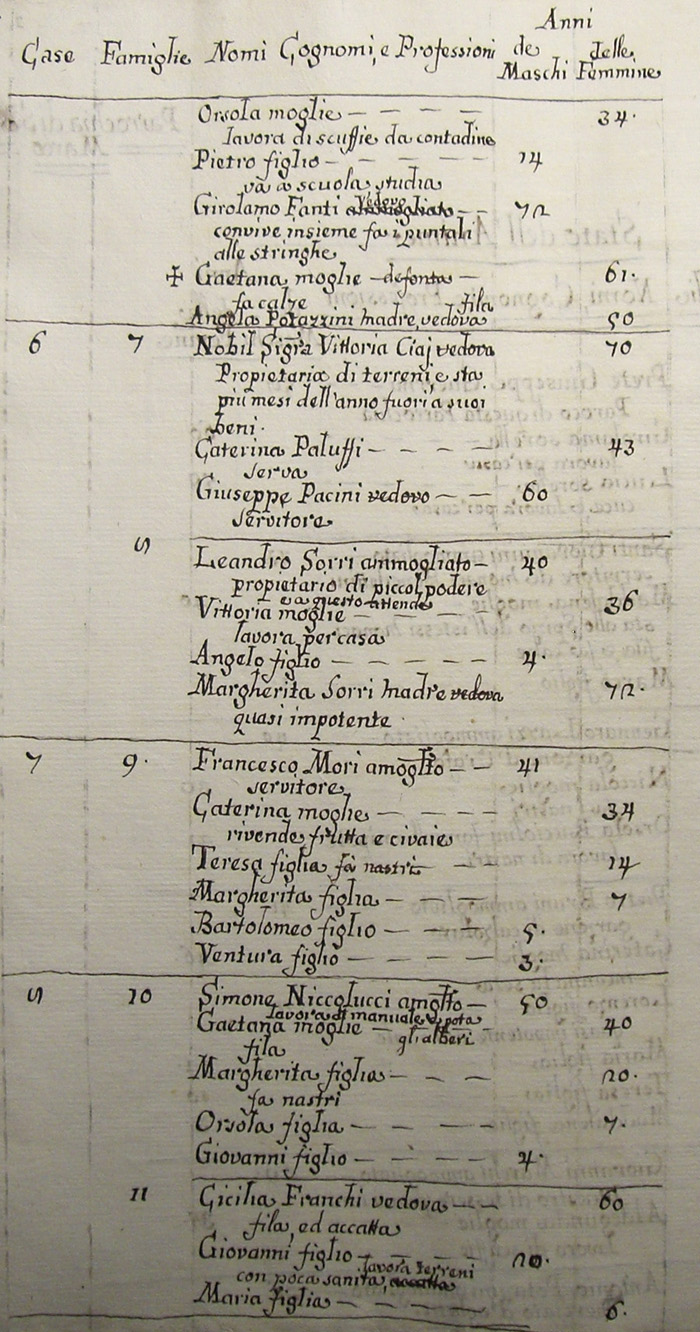 Anni
Case Famiglie Nomi Cognomi, e Professioni de Maschi delle Femmine
Orsola moglie — — — — 34.
lavora di scuffie da contadine
Pietro figlio — — — — 14
và a scuola, studia
Girolamo Fanti vedovo — — 72
convive insieme fa i puntali
alle stringhe
✠ Gaetana moglie — defonta — 61.
fa calze fila
Angela Potazzini Madre, vedova 50
6 7 Nobil Sigra Vittoria Ciaj vedova 70
Propietaria di terreni, e sta
più mesi dell'anno fuori a suoi
beni.
Caterina Paluffi — — — — 43
serva
Giuseppe Pacini vedovo — — 60
servitore
8 Leandro Sorri ammogliato — 40
propietario di piccol podere
e a questo attende
Vittoria moglie — — — 36
lavora per casa
Angelo figlio — — — — 4.
Margherita Sorri Madre vedova 72.
quasi impotente
7 9. Francesco Mori amoglto — — 41
servitore
Caterina moglie — — — — 34
rivende frutta e civaie
Teresa figlia fà nastri — — 14
Margherita figlia — — — 7
Bartolomeo figlio — — — 5.
Ventura figlio — — — 3.
8 10 Simone Niccolucci amolto — 50
lavora di manuale e pota
gli alberi
Gaetana moglie — 40
fila
Margherita figlia — — — 20.
fa nastri
Orsola figlia — — — — 7.
Giovanni figlio — — — — 4.
11 Cicilia Franchi vedova — — 60
fila, ed accatta
Giovanni figlio — — — — 20.
lavora terreni
con poca sanità,
Maria figlia — — — — 6.